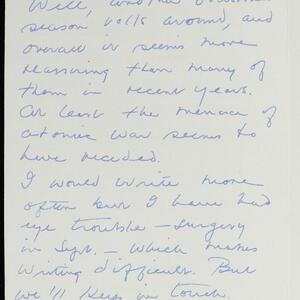 Well, another
season rolls around, and
overall it seems more
reassuring than many of
them in recent years.
At least the menace of
atomic war seems to
have receded.
I would write more
often but I have had
eye trouble – surgery
in Sept. – which makes
writing difficult. But
we'll keep in touch.